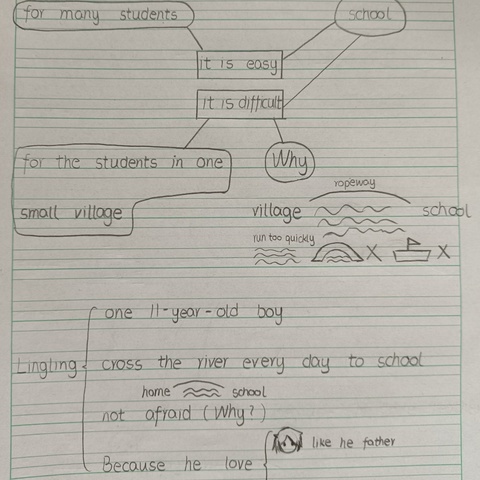 for many students
school
it is easy
it is difficult
for the students in one
Why
small village
ropeway
village
school
run too quickly
X
X
one 11-year-old boy
Lingling
cross the river every day to school
home school
not afraid (Why?)
like he father
Because he love